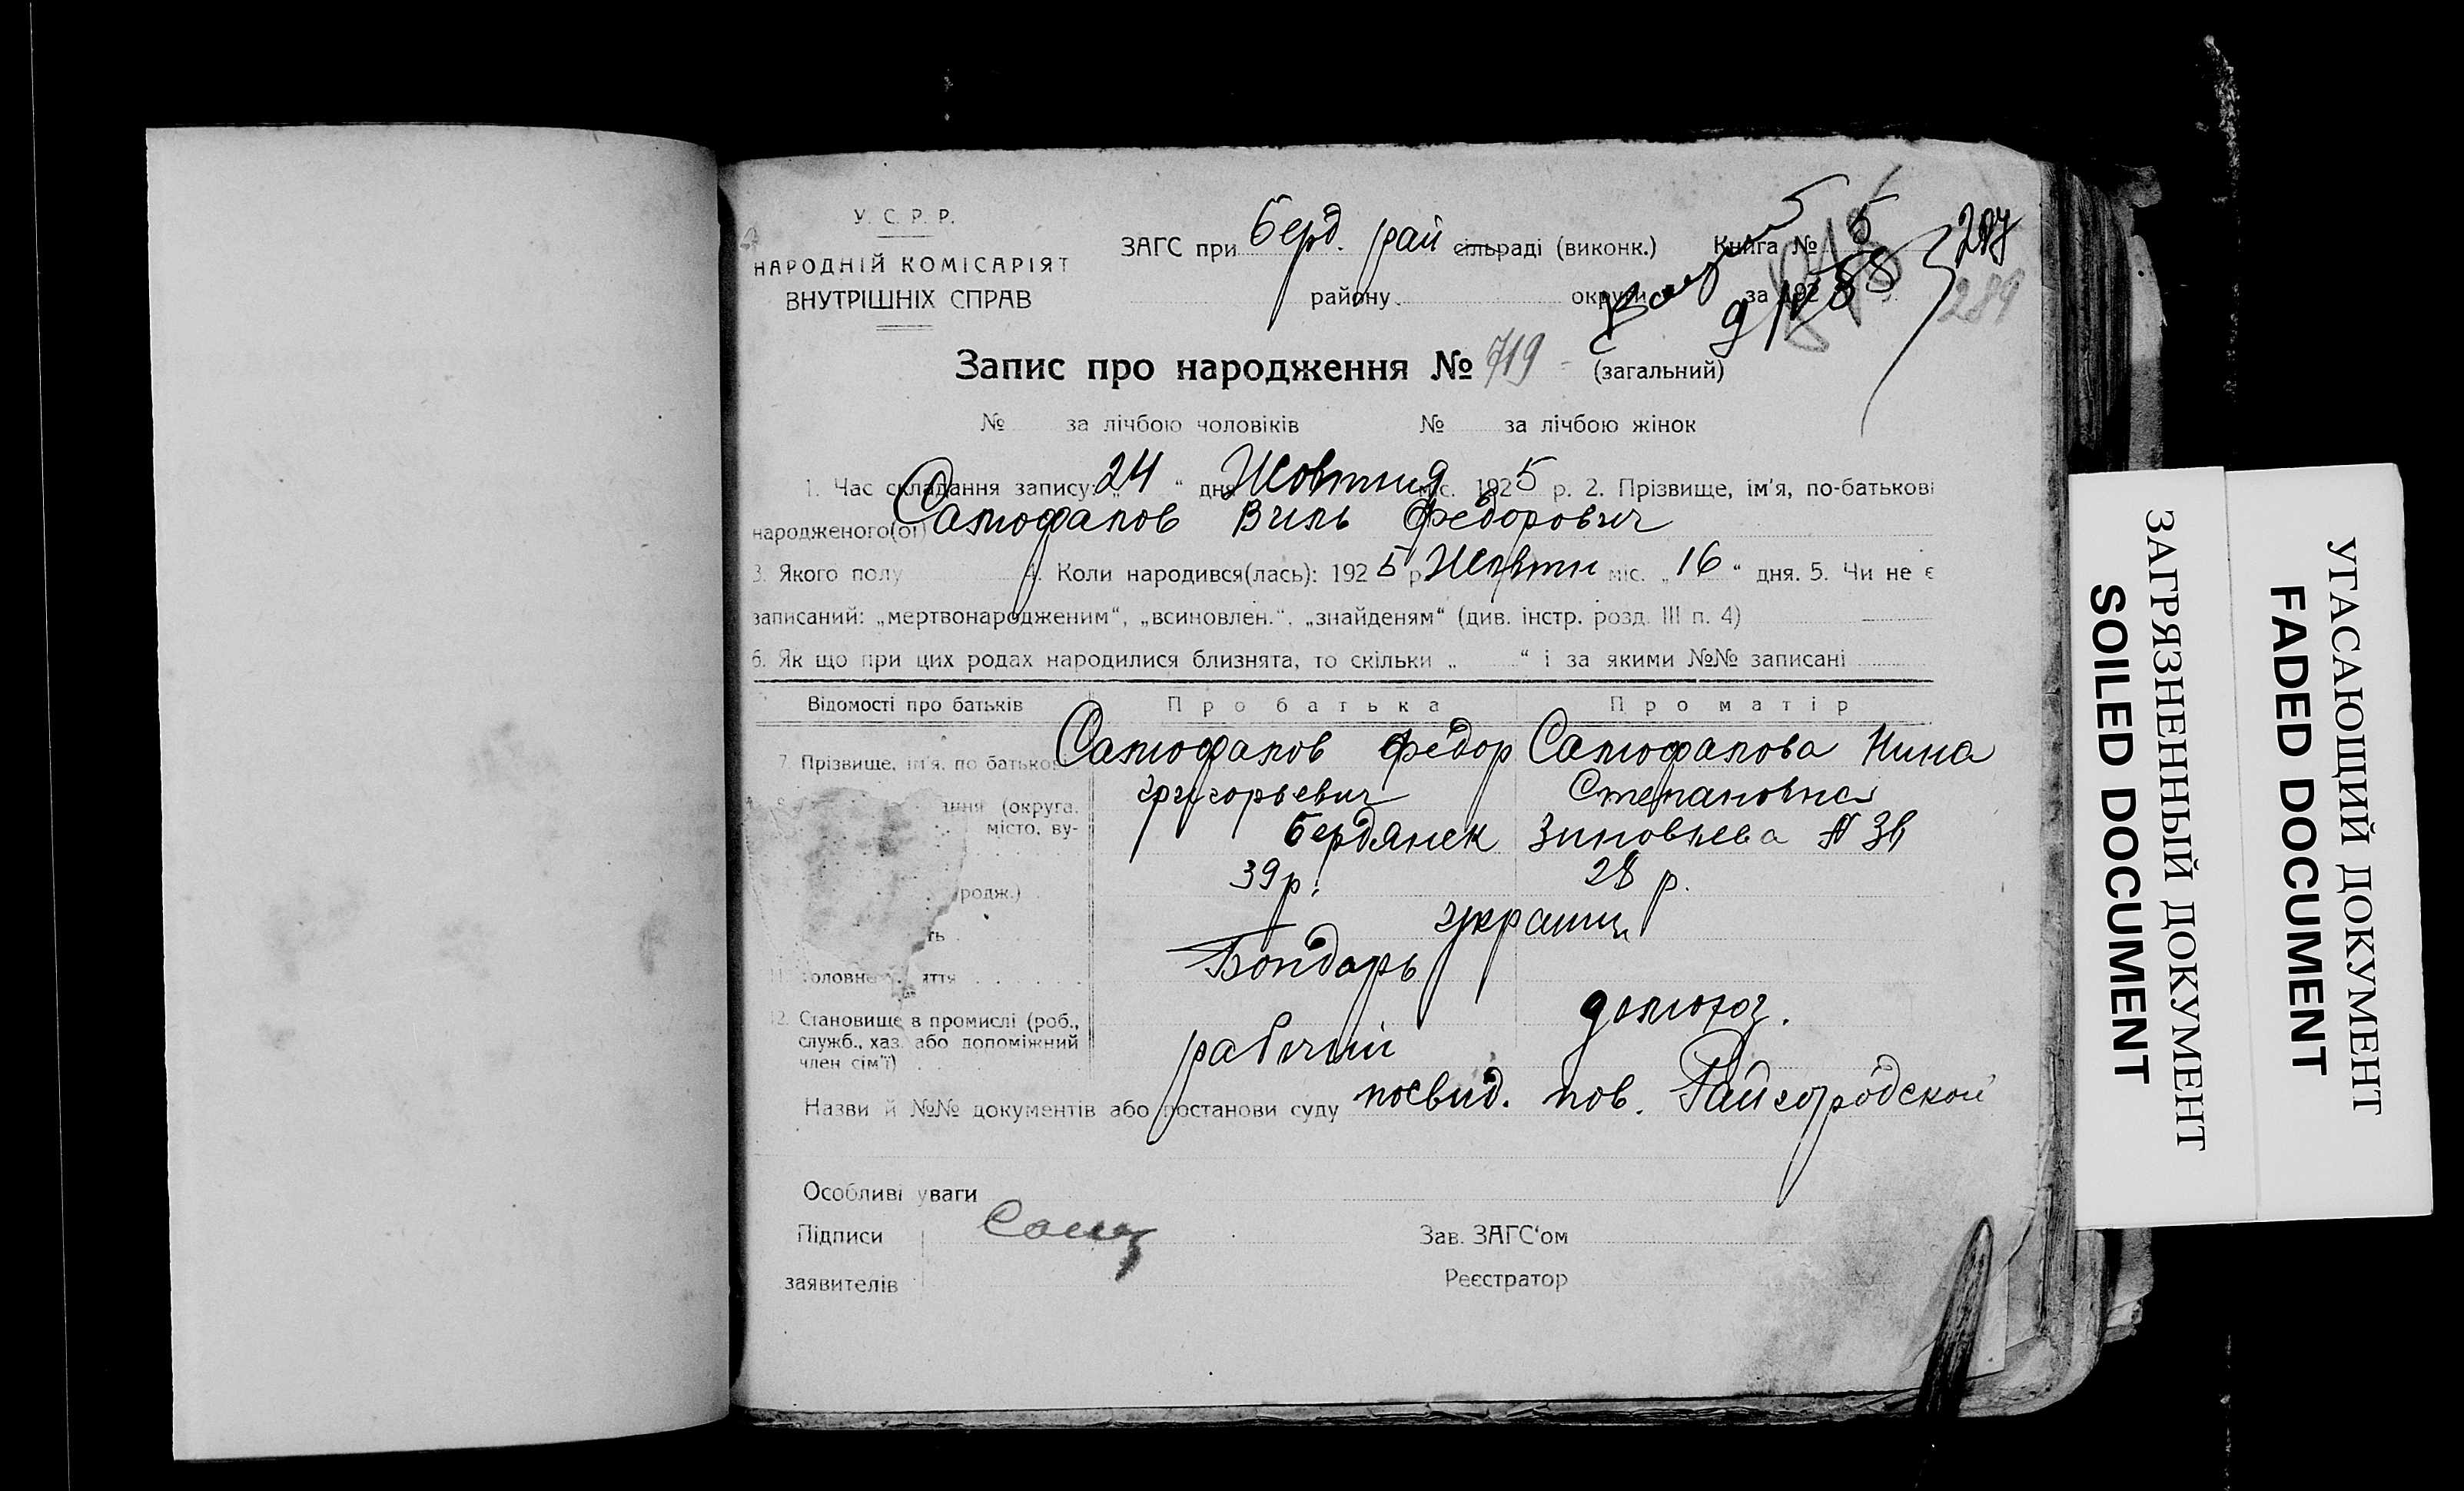 У. С. Р. Р.
НАРОДНІЙ КОМІСАРІЯТ
ВНУТРІШНІХ СПРАВ
ЗАГС при Берд. рай сільраді (виконк.) Книга № 5
району округи за 192
289
Запис про народження № 719 (загальний)
№ за лічбою чоловіків № за лічбою жінок
1. Час складання запису: „24“ дня Жовтня міс. 1925 р. 2. Прізвище, ім'я, по-батькові
народженого(ої) Самофалов Виль Федорович
3. Якого полу 4. Коли народився(лась): 1925 р. Жовтн міс. „16“ дня. 5. Чи не є
записаний: „мертвонародженим“, „всиновлен.“, „знайденям“ (див. інстр. розд. III п. 4)
6. Як що при цих родах народилися близнята, то скільки „ “ і за якими №№ записані
Відомості про батьків Про батька Про матір
7. Прізвище, ім'я, по батькові Самофалов Федор Самофалова Нина
Григорьевич Степановна
(округа,
місто, ву-
Бердянск Зиновьева №
родж.) 39 р. 28 р.
украинц
Бондарь
домохоз.
12. Становище в промислі (роб.,
служб., хаз. або допоміжний
член сім'ї)
рабочий
Назви й №№ документів або постанови суду посвид. пов. Райгородской
Особливі уваги
Підписи
заявителів
Зав. ЗАГС'ом
Реєстратор
ЗАГРЯЗНЕННЫЙ ДОКУМЕНТ
SOILED DOCUMENT
УГАСАЮЩИЙ ДОКУМЕНТ
FADED DOCUMENT